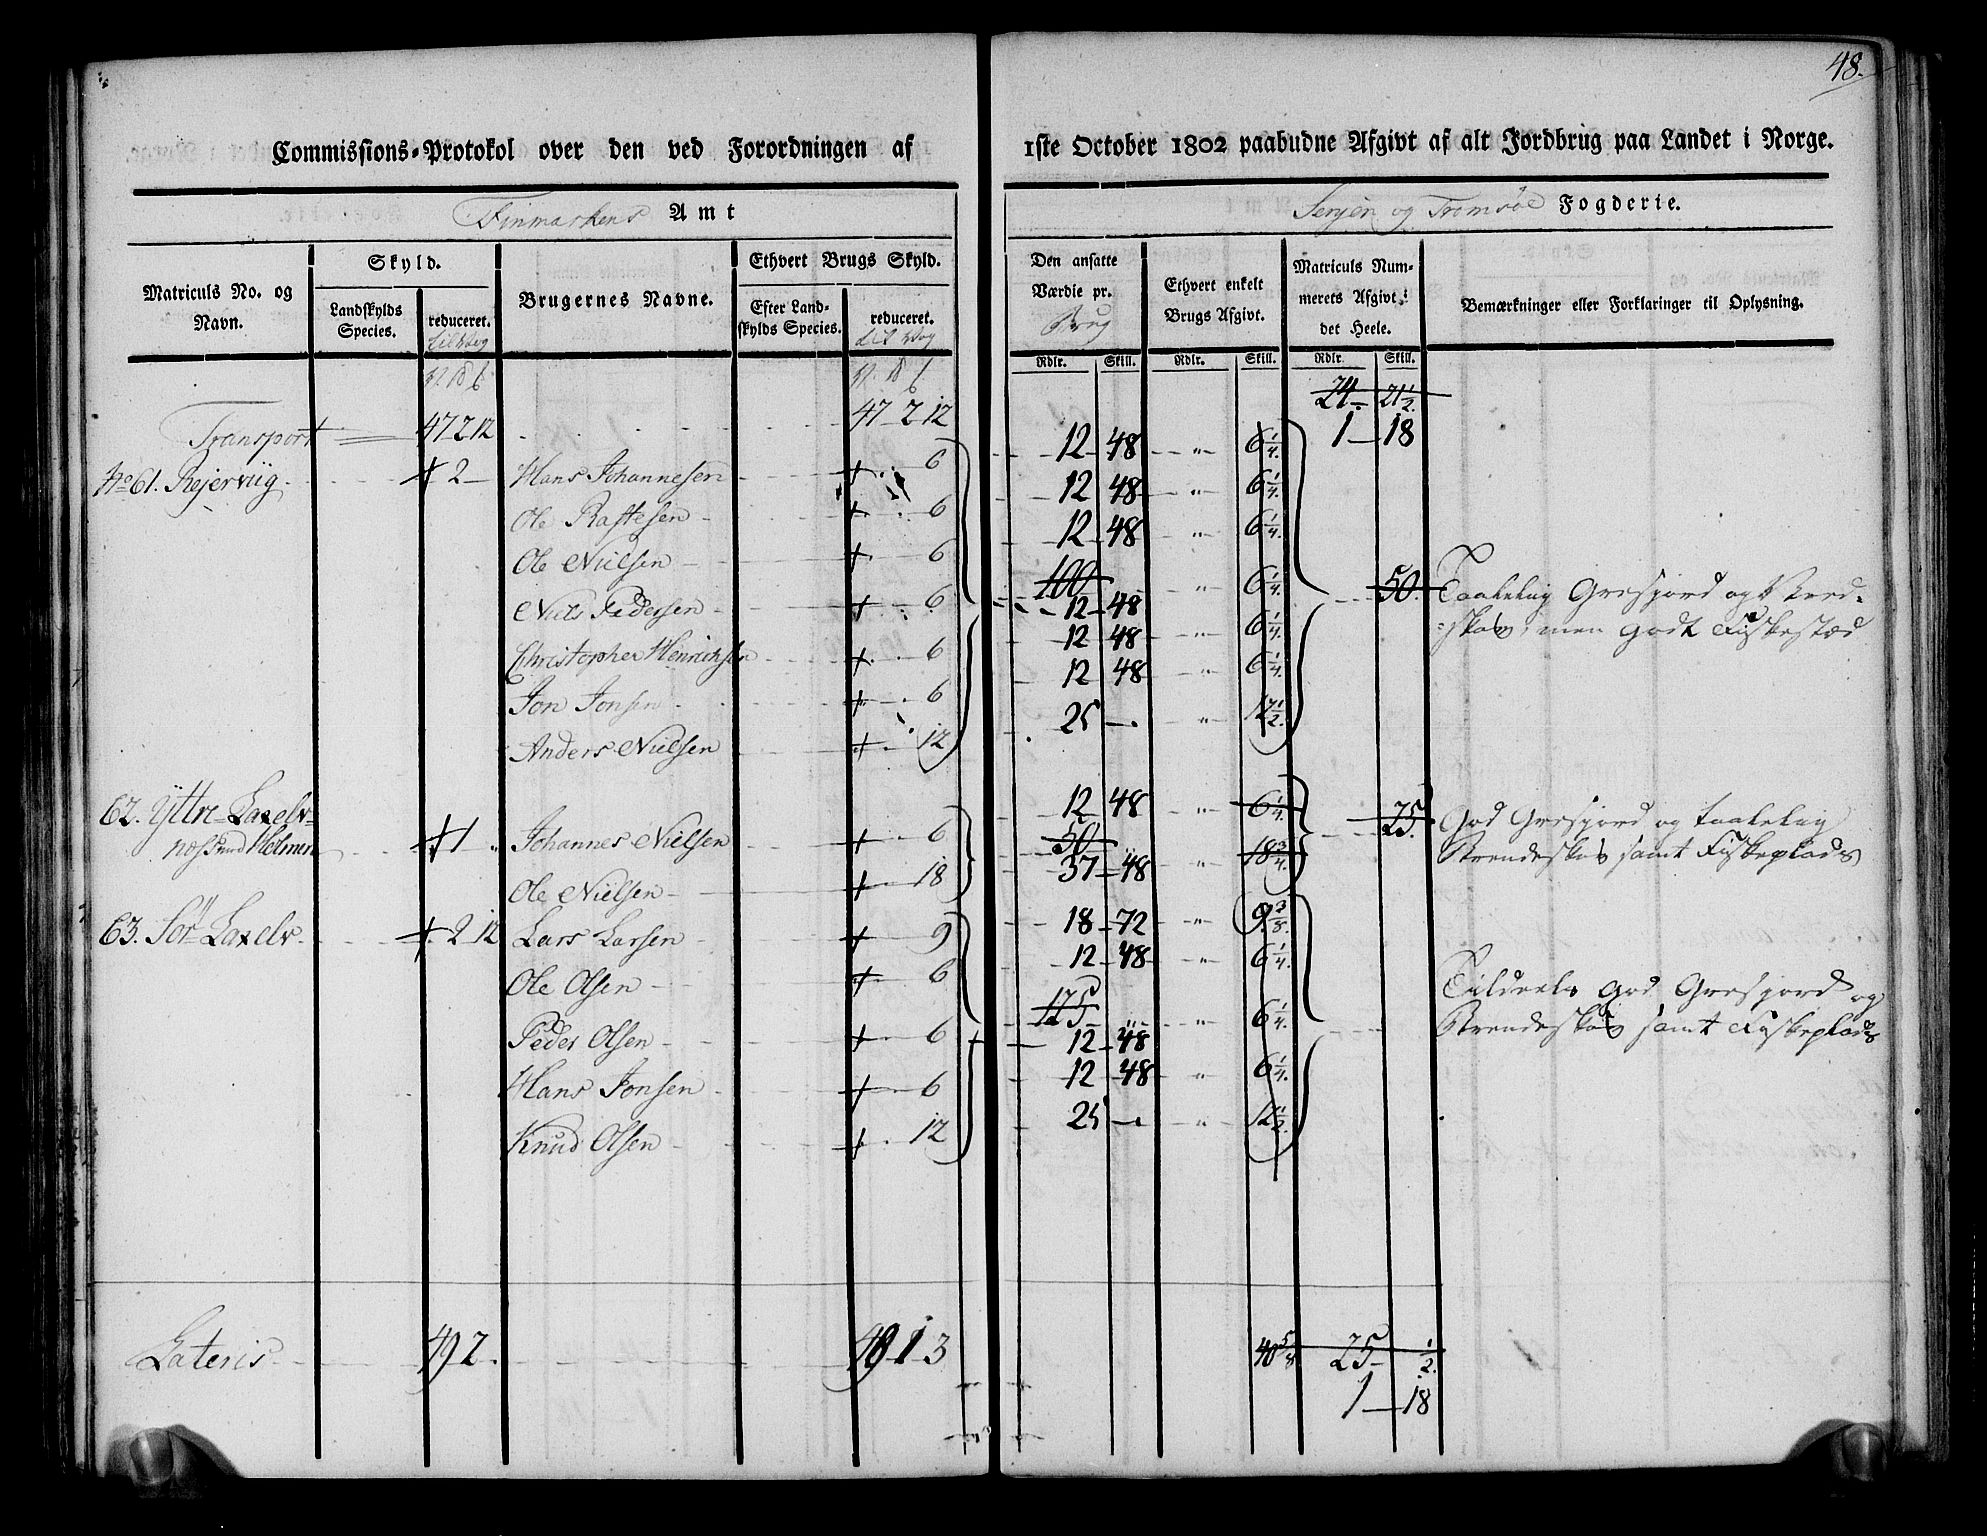 48.
Commissions-Protokol over den ved Forordningen af 1ste October 1802 paabudne Afgivt af alt Jordbrug paa Landet i Norge.
Finmarkens Amt
Senjen og Tromsøe Fogderie.
Matriculs No. og Navn.
Skyld.
Landskylds Species.
reduceret.
Brugernes Navne.
Ethvert Brugs Skyld.
Efter Landskylds Species.
reduceret.
Den ansatte Værdie pr. Brug
Ethvert enkelt Brugs Afgivt.
Matriculs Nummerets Afgivt i det Heele.
Bemærkninger eller Forklaringer til Oplysning.
Rdlr. Skill. Rdlr. Skill. Rdlr. Skill.
24 21 1/2.
Transport 47 2 12 47 2 12 1 18
No 61. Rejerviig 2 Hans Johannesen 6 12 48 " 6 1/4.
Ole Rastesen 6 12 48 " 6 1/4.
Ole Nielsen 6 12 48 " 6 1/4.
100
Niels Pedersen 6 12 48 " 6 1/4. 50. Taalelig Gresjord og
men godt Fiskestæd
Christopher Henrichsen 6 12 48 " 6 1/4.
Jon Jonsen 6 12 48 " 6 1/4.
Anders Nielsen 12 25 " 12 1/2.
62. Yttre Laxelv
næss und Holmen 1 Johannes Nielsen 6 12 48 " 6 1/4. 25. God Gresjord og taalelig
50
Ole Nielsen 18 37 48 " 18 3/4. samt Fiskeplads
63. Sör Laxelv 2 12 Lars Larsen 9 18 72 " 9 3/8.
Ole Olsen 6 12 48 " 6 1/4.
125
Peder Olsen 6 12 48 " 6 1/4. Tildeels God Gresjord og
samt Fiskeplads
Hans Jonsen 6 12 48 " 6 1/4.
Knud Olsen 12 25 " 12 1/2.
Lateris 49 2 49 1 3 40 5/8 25 1/2.
1 18